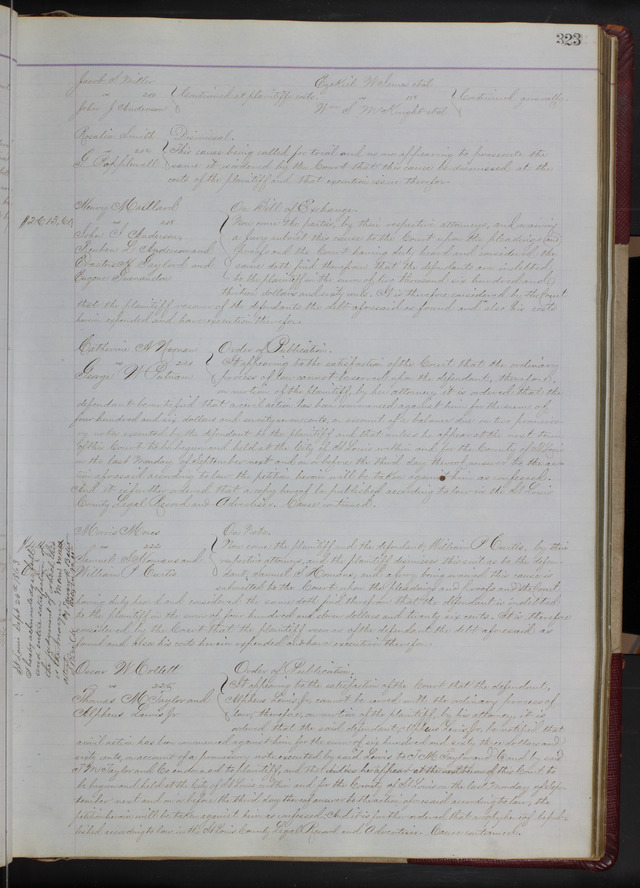 323
Jacob S. Miller
vs 202 Continued at plaintiffs costs.
John J. Anderson
Ezekiel W.
vs 117 Continued generally.
Wm S. McKnight et al
Rosalin Smith Dismissal.
vs 204 This cause being called for trial and no one appearing to prosecute the
same it is ordered by the Court that this cause be dismissed at the
costs of the plaintiff and that execution issue therefor.
Henry Maillard On Bill of Exchange.
$2613.60
vs 208 Now come the parties, by their respective attorneys, and waiving
John J. Anderson, a jury submit this cause to the Court upon the pleadings and
Reuben L. Anderson and proofs and the Court having duly heard and considered the
Gaylord and same doth find therefore that the defendants are indebted
Eugene to the plaintiff in the sum of two thousand six hundred and
thirteen dollars and sixty cents. It is therefore considered by the Court
that the plaintiff recover of the defendants the debt aforesaid as found and also his costs
herein expended and have execution therefor.
Catherine N. Noonan Order of Publication.
vs 210 It appearing to the satisfaction of the Court that the ordinary
George W. Putnam process of law cannot be served upon the defendant, therefore,
on motion of the plaintiff, by her attorney it is ordered that the
defendant be notified that a civil action has been commenced against him for the sum of
four hundred and six dollars and seventy seven cents, on account of a balance due on two promissory
notes executed by the defendant to the plaintiff and that unless he appear at the next term
of this Court to be begun and held at the City of St Louis within and for the County of St Louis
on the last Monday of September next and on or before the third day thereof answer to the ac-
tion aforesaid according to law the petition herein will be taken against him as confessed.
And it is further ordered that a copy hereof be published according to law in the St Louis
County Legal Record and Advertiser. Cause continued.
Morris Moses On Note.
vs 222 Now come the plaintiff and the defendant, William P. Curtis, by their
Samuel and respective attorneys, and the plaintiff dismisses this suit as to the defen-
William P. Curtis dant, Samuel and a jury being waived this cause is
submitted to the Court upon the pleadings and proofs and the Court
having duly heard and considered the same doth find therefore that the defendant is indebted
to the plaintiff in the sum of four hundred and dollars and twenty six cents. It is therefore
considered by the Court that the plaintiff recover of the defendant the debt aforesaid as
found and also his costs herein expended and have execution therefor.
St Louis Sept 29th 1863
Oscar W. Collett Order of Publication.
vs 225 It appearing to the satisfaction of the Court that the defendant,
Thomas M. Taylor and Alpheus Lewis Jr, cannot be served with the ordinary process of
Alpheus Lewis Jr law, therefore, on motion of the plaintiff, by his attorney it is
ordered that the said defendant Alpheus Lewis Jr, be notified that
a civil action has been commenced against him for the sum of six hundred and sixty three dollars and
sixty cents, on account of a promissory note executed by said Lewis to T. M. Taylor and Co and by said
T. M. Taylor and Co endorsed to plaintiff, and that unless he appear at the next term of this Court to
be begun and held at the City of St Louis within and for the County of St Louis on the last Monday of Sep-
tember next and on or before the third day thereof answer to the action aforesaid according to law, the
petition herein will be taken against him as confessed. And it is further ordered that a copy hereof be pub-
lished according to law in the St Louis County Legal Record and Advertiser. Cause continued.